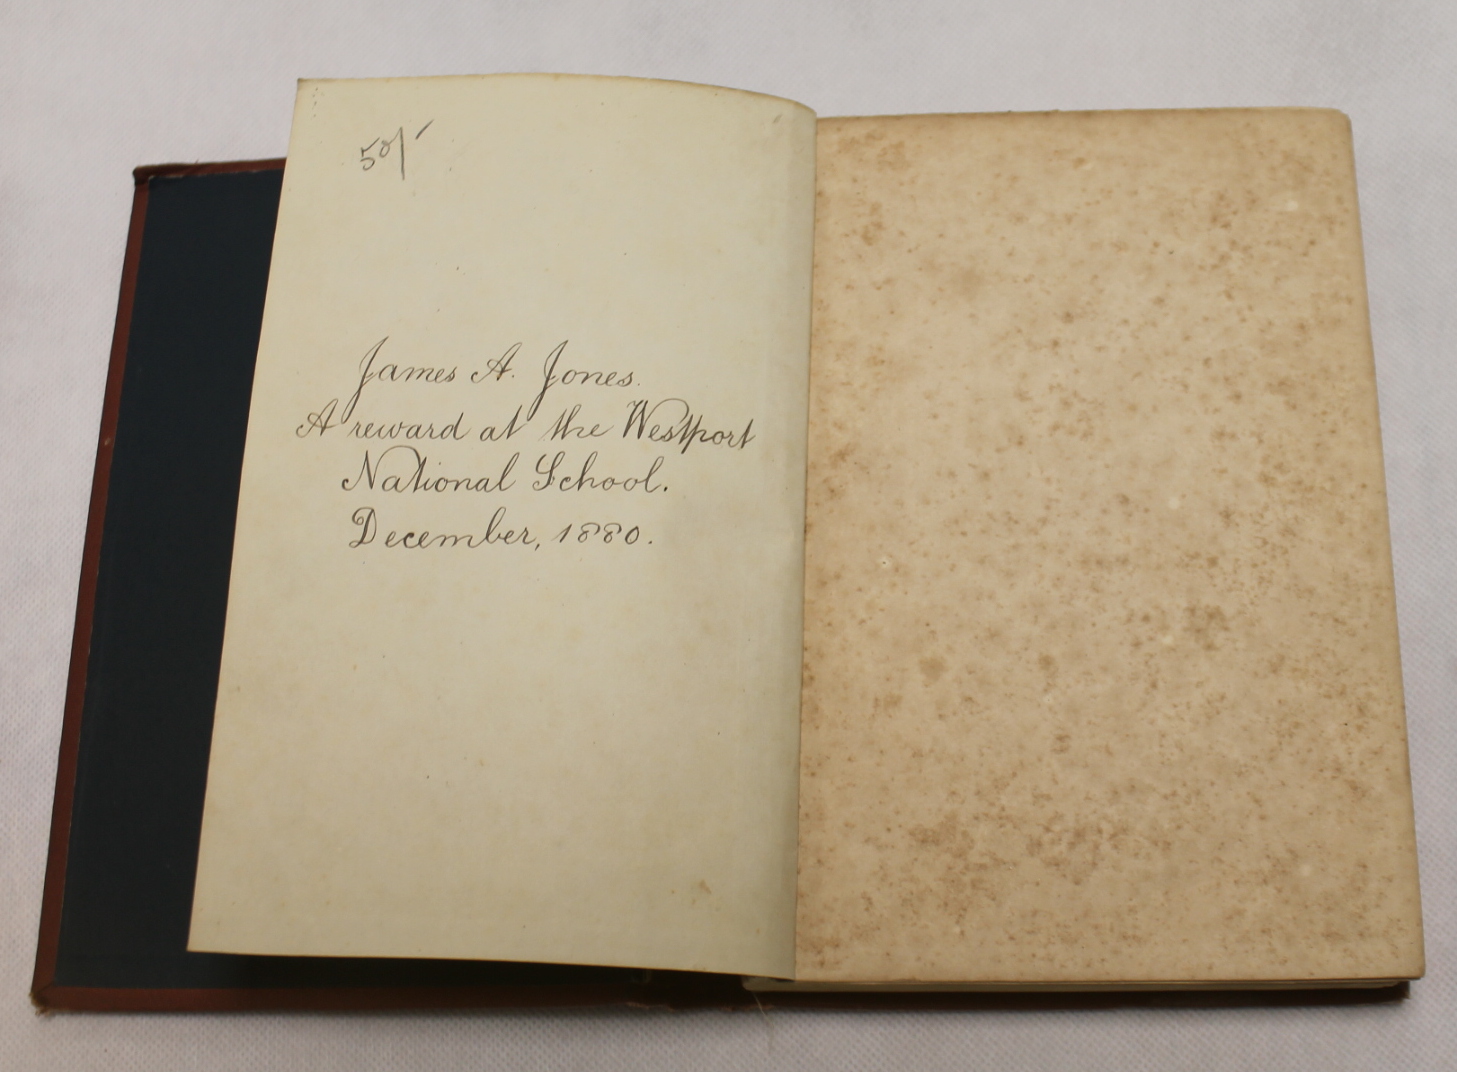 50/-
James A. Jones.
A reward at the Westport
National School.
December, 1880.